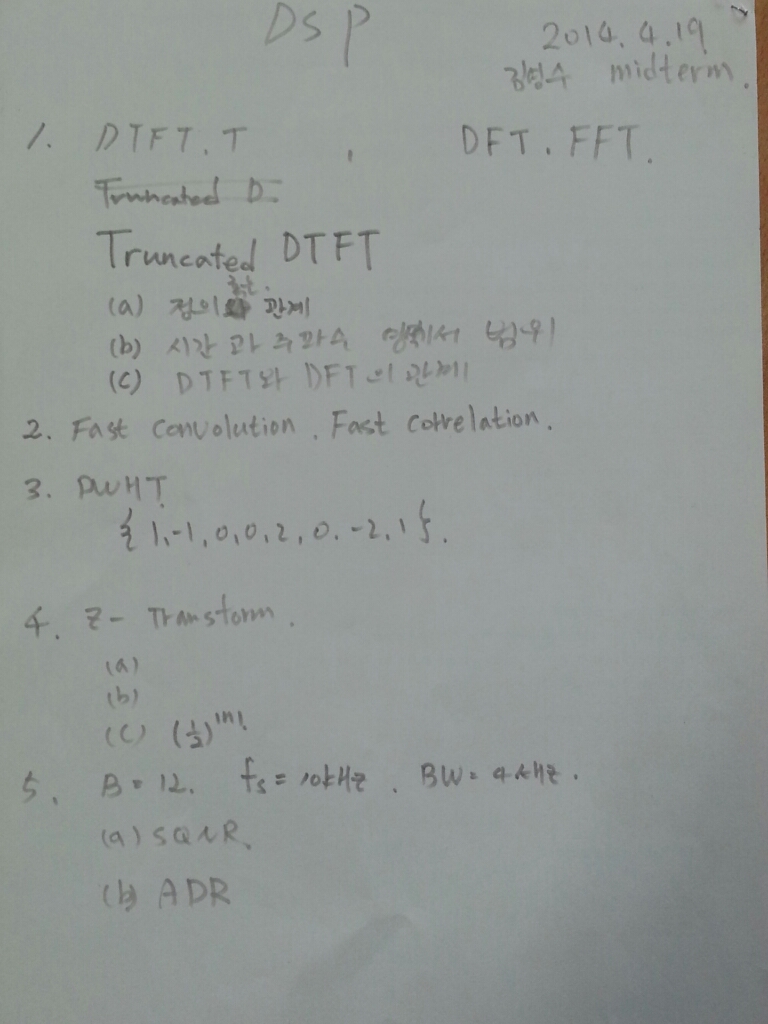 DSP
2014. 4. 19
김영수 midterm.
1. DTFT. T , DFT. FFT.
Truncated D.
Truncated DTFT
(a) 정의 관계
(b) 시간과 주파수 영역에서 범위
(c) DTFT와 DFT의 관계
2. Fast Convolution. Fast Correlation.
3. DWHT
{1,-1,0,0,2,0.-2,1}.
4. Z- Transform.
(a)
(b)
(c) (1/2)^|n|.
5. B = 12. fs = 10kHz. BW = 4kHz.
(a) SQNR.
(b) ADR